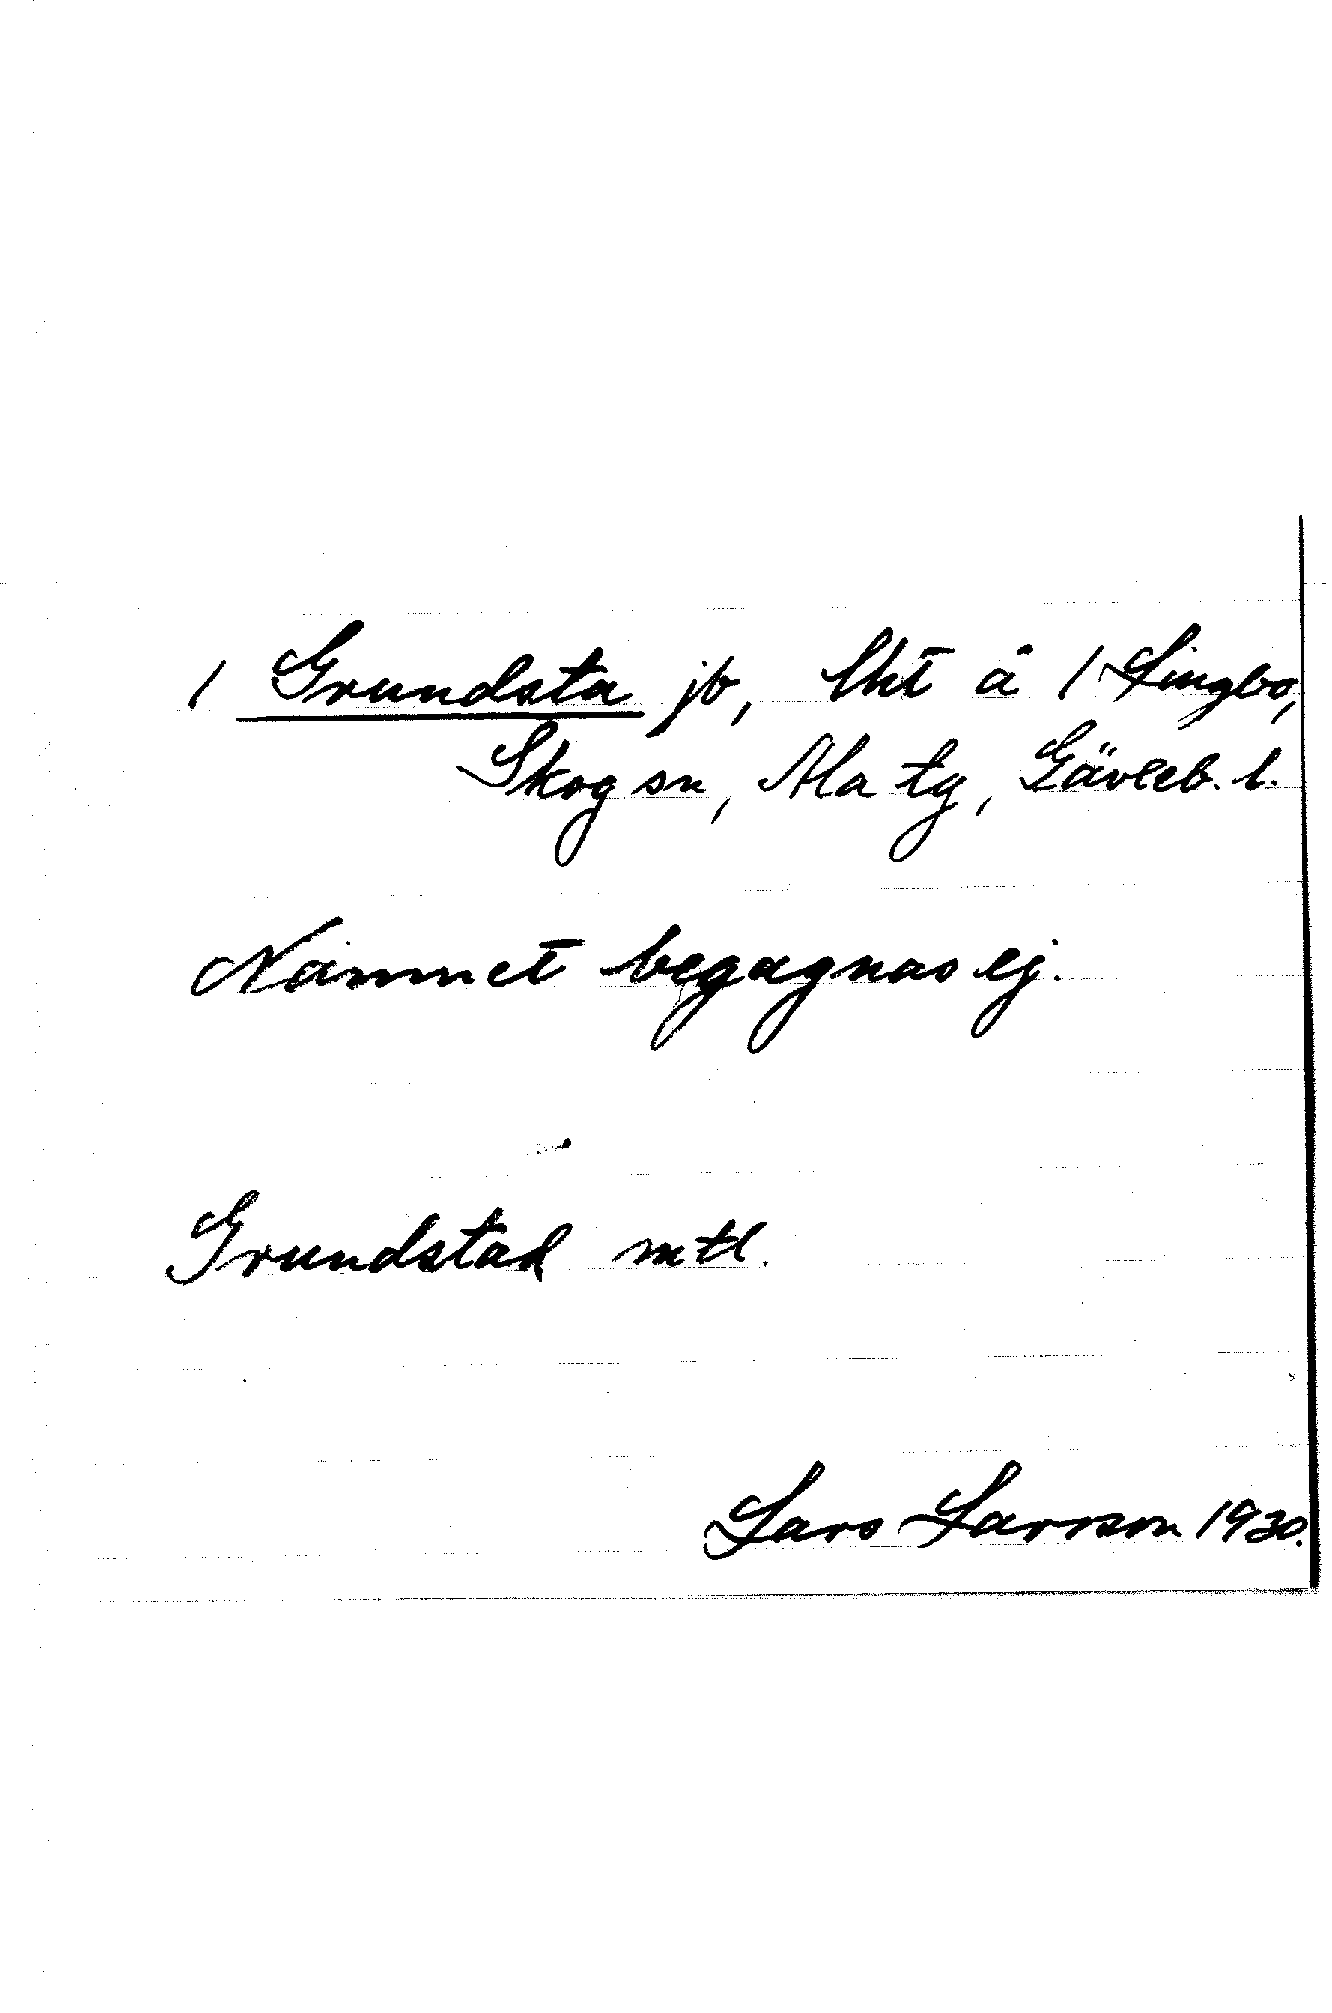 / Grundsta jb, lht å / Lingbo,
Skog sn, Ala tg, Gävleb. l.
Namnet begagnas ej.
Grundstad mtl.
Lars Larsson 1930.